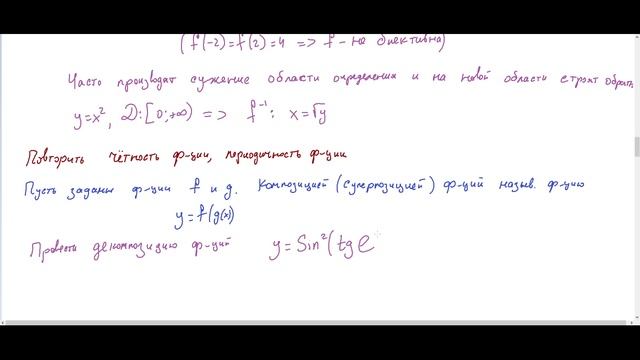 (f(-2)=f(2)=4 => f - не биективна)
Часто производят сужение области определения и на новой области строят обратн
y=x², D:[0;+∞) => f⁻¹: x=√y
Повторить чётность ф-ции, периодичность ф-ции
Пусть заданы ф-ции f и g. Композицией (суперпозицией) ф-ций назыв. ф-цию
y=f(g(x))
Провести декомпозицию ф-ций y=Sin²(tg e